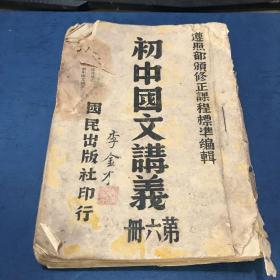 遵照部頒修正課程標準編輯
初中國文講義
第六冊
李金才
國民出版社印行